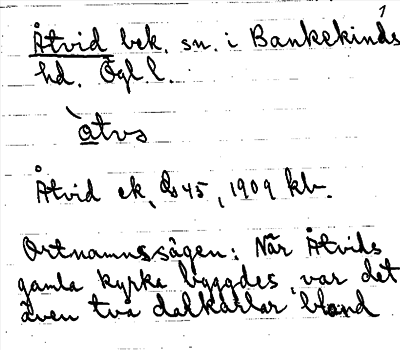 1
Åtvid bek. sn. i Bankekinds
hd. Ögl. l.
àtvs
Åtvid ek, 1909 kb.
Ortnamnssägen: När Åtvids
gamla kyrka byggdes, var det
även två dalkarlar bland